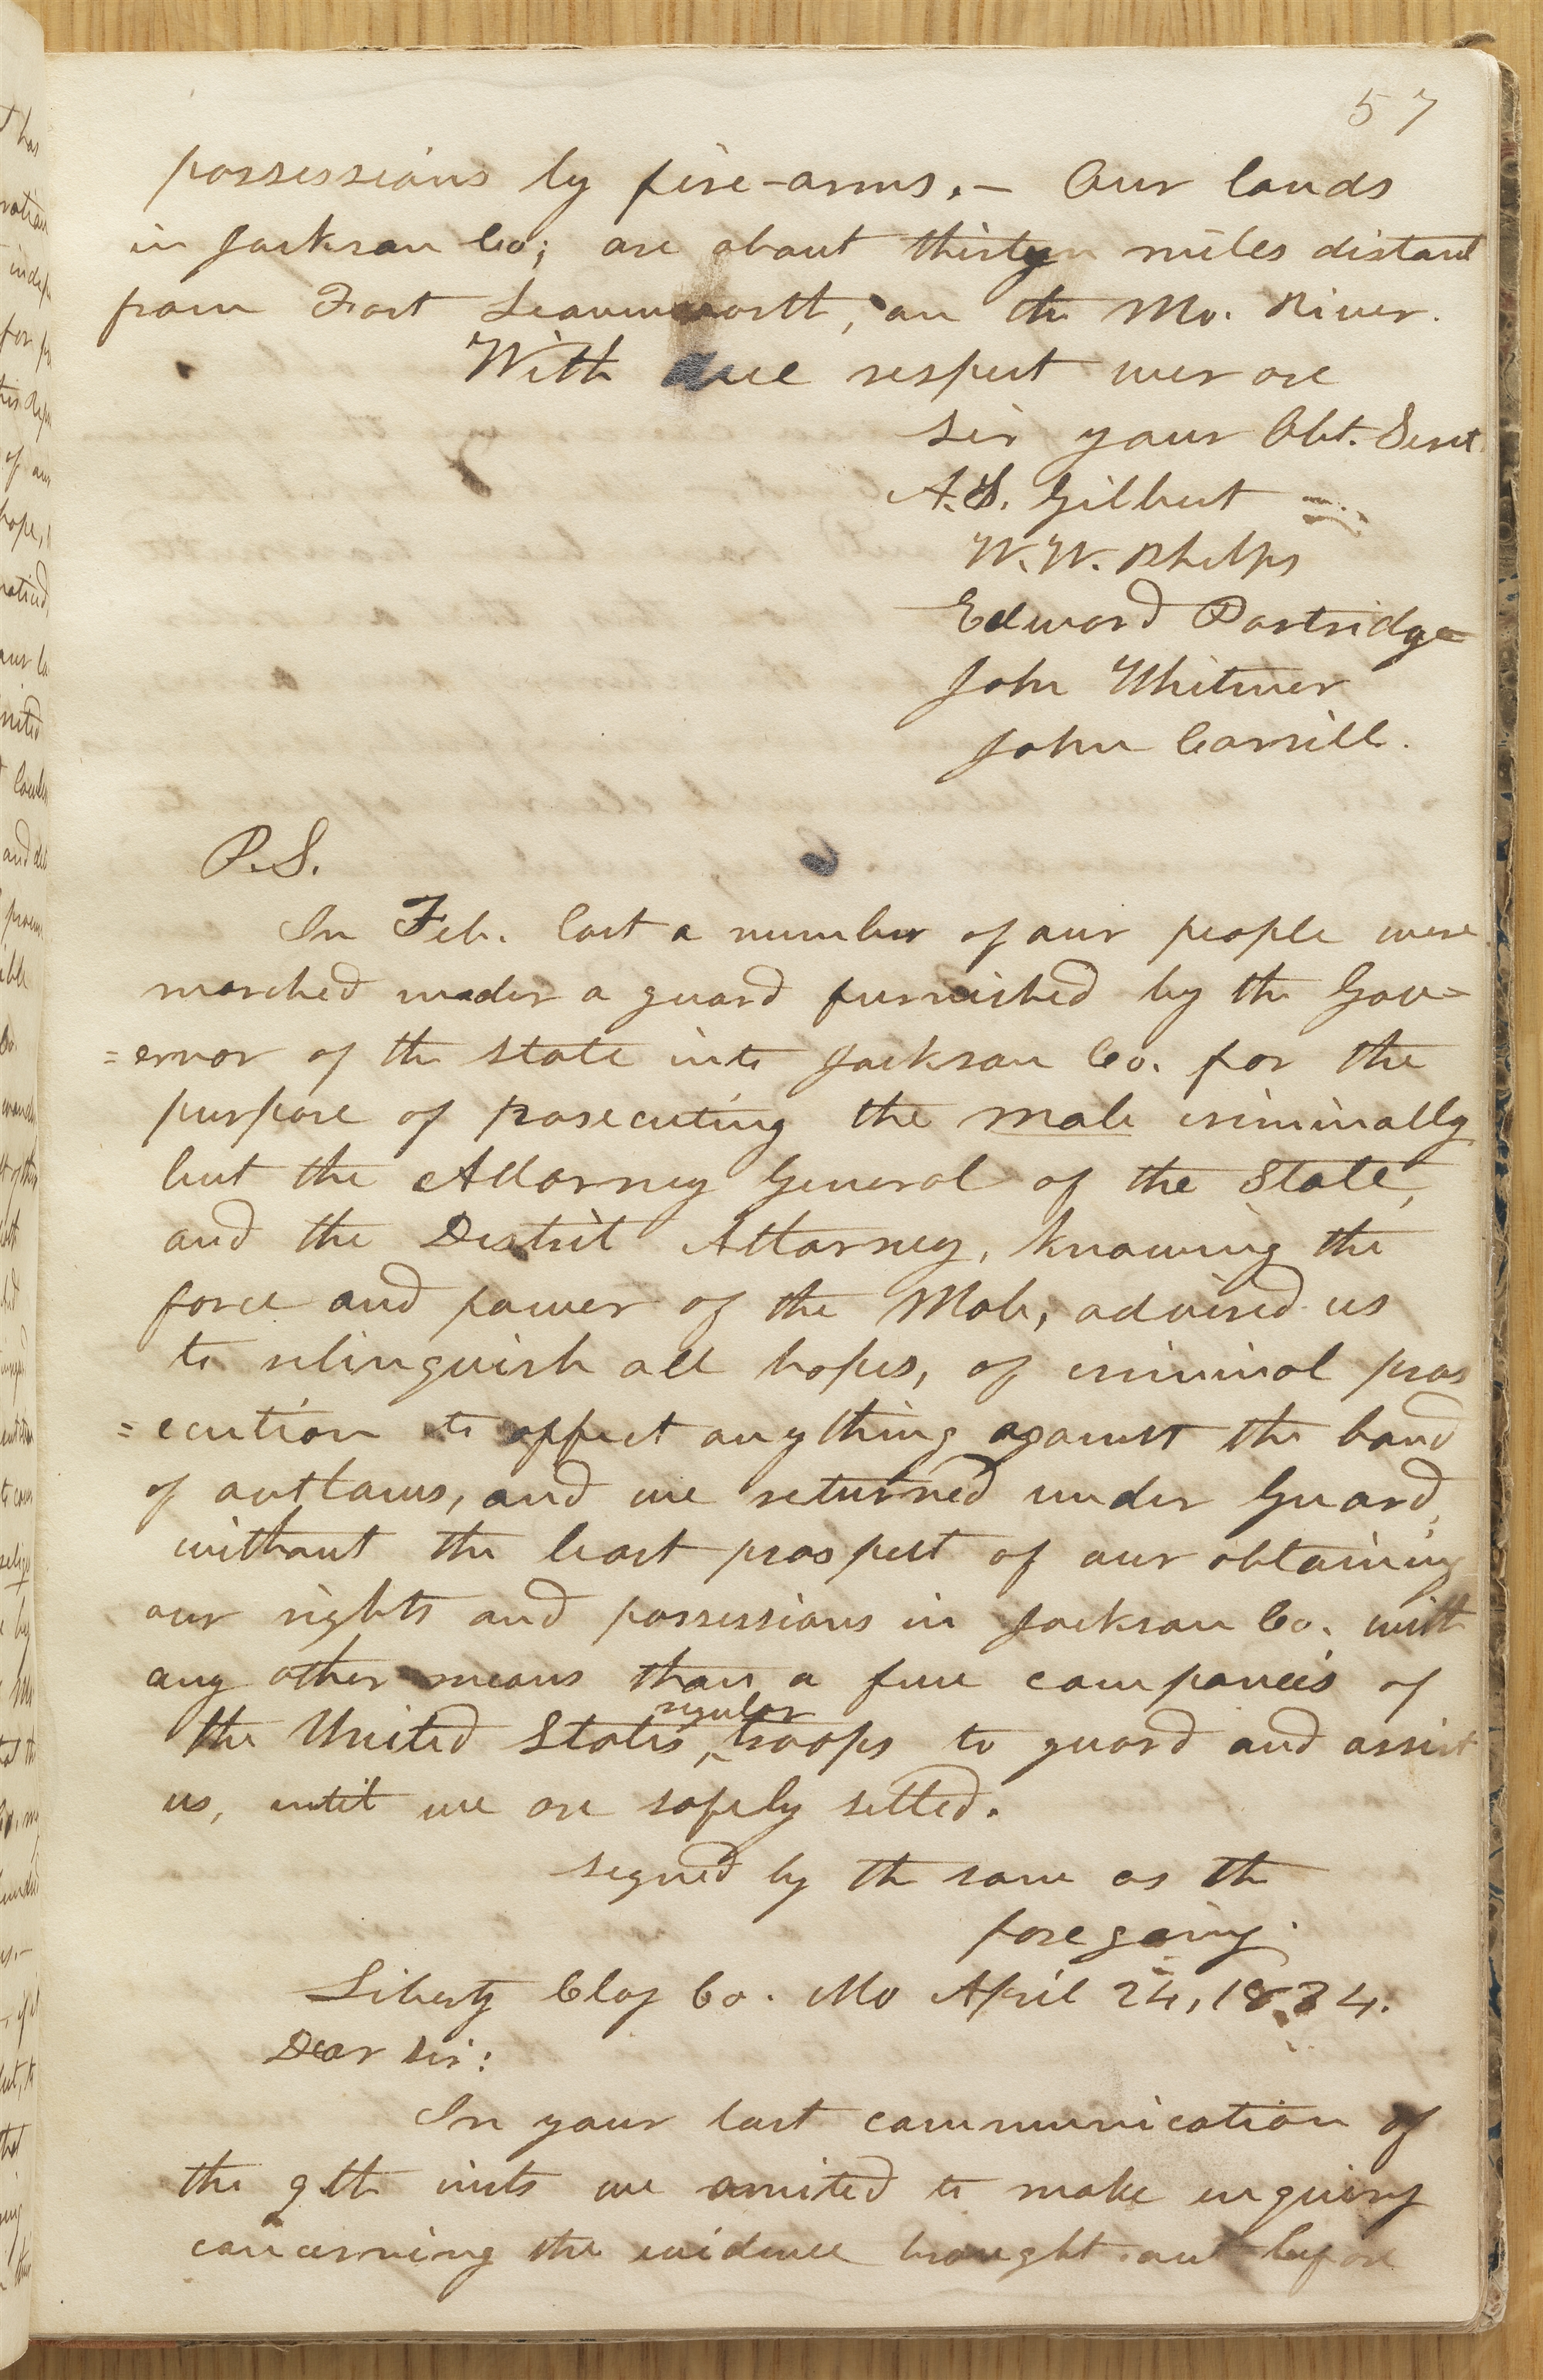 57
possessions by fire-arms.— Our lands
in Jackson Co; are about thirty miles distant
from Fort Leavenworth, on the Mo. River.
With due respect we are
sir your Obt. Servt
A. S. Gilbert
W. W. Phelps
Edward Partridge
John Whitmer
John Corrill.
P.S.
In Feb. last a number of our people were
marched under a guard furnished by the Gov=
=ernor of the state into Jackson Co. for the
purpose of prosecuting the mob criminally
but the Attorney General of the State,
and the District Attorney, knowing the
force and power of the Mob, advised us
to relinquish all hopes, of criminal pros
=ecution to affect anything against the band
of outlaws, and we returned under Guard,
without the least prospect of our obtaining
our rights and possessions in Jackson Co. with
any other means than a few companeis of
the United States, regular troops to guard and assist
us, until we are safely setted.
signed by th same as th
foregoing.
Liberty Clay Co. Mo April 24, 1834.
Dear Sir:
In your last communication of
the 9th inst we omited to make enquiry
concerning the evidence brought out before